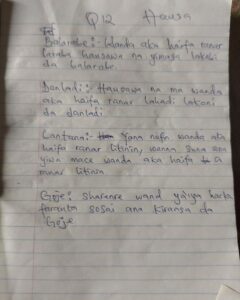 Q12 Hausa
Balarabe:- Wanda aka haifa ranar
laraba hausawa na yimasa lakabi
da balarabe.
Danladi:- Hausawa na ma wanda
aka haifa ranar lahadi lakani
da danladi
Lantana:- Yana nufin wanda aka
haifa ranar litinin, wanna suna ana
yiwa mace wanda aka haifa
a ranar litinin
Goje: Sharenre wand ya iya
farauta sosai ana kiransa da
Goje